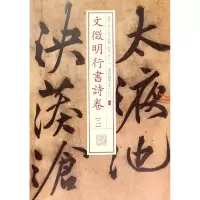 太液池
文徵明行書詩卷
泱漭滄